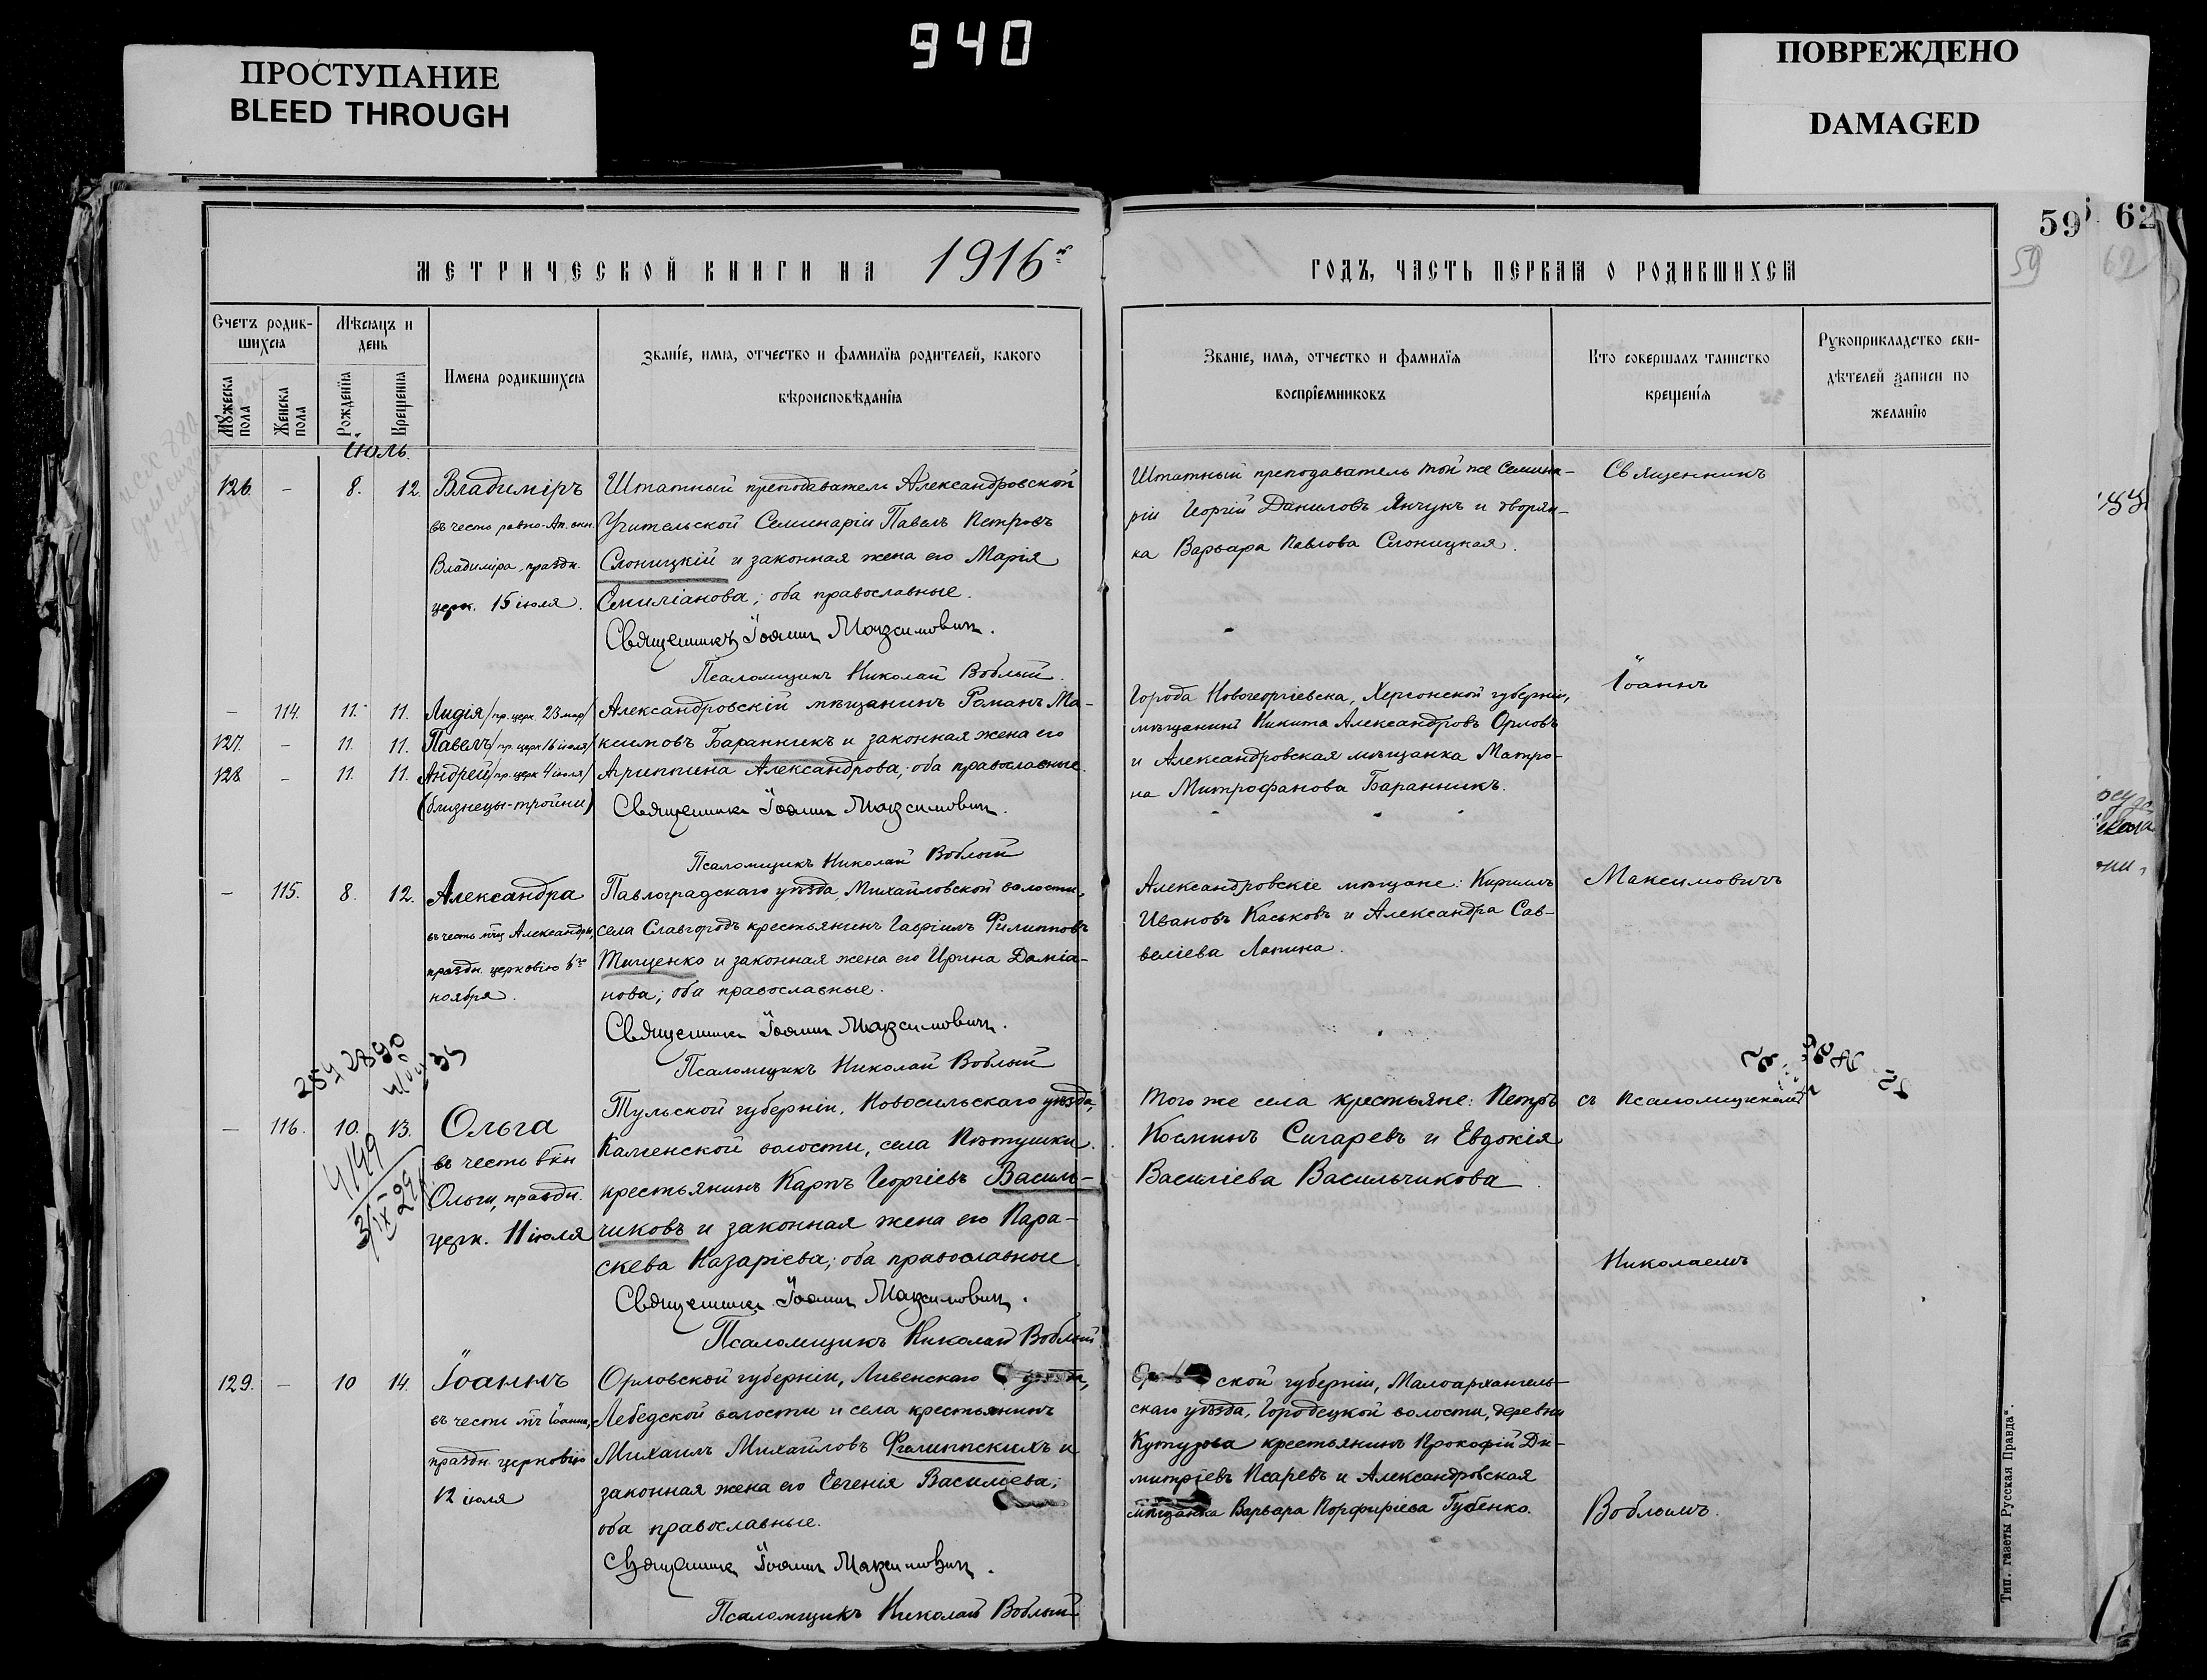 940
ПРОСТУПАНИЕ
BLEED THROUGH
ПОВРЕЖДЕНО
DAMAGED
59
62
59
62
МЕТРИЧЕСКОЙ КНИГИ НА 1916й
ГОДЪ, ЧАСТЬ ПЕРВАЯ О РОДИВШИХСЯ
Счетъ родив-
шихся
Мѣсяцъ и
день
Имена родившихся
Званіе, имя, отчество и фамилія родителей, какого
вѣроисповѣданія
Мужеска
пола
Женска
пола
Рожденія
Крещенія
Званіе, имя, отчество и фамилія
воспріемниковъ
Кто совершалъ таинство
крещенія
Рукоприкладство сви-
дѣтелей записи по
желанію
Июль.
126. - 8. 12. Владиміръ
въ честь равно-Ап. кн.
Владиміра, праздн.
церк. 15 іюля.
Штатный преподаватель Александровской
Учительской Семинаріи Павелъ Петровъ
Слоницкій и законная жена его Марія
Емиліанова; оба православные.
Священникъ Іоаннъ Максимович.
Псаломщикъ Николай Воблый.
Штатный преподаватель той же Семина-
ріи Георгій Даниловъ Янчукъ и дворян-
ка Варвара Павлова Слоницкая.
Священникъ
- 114. 11. 11. Лидія /пр. церк. 23 мар/
127. - 11. 11. Павелъ /пр. церк 16 іюля/
128 - 11. 11. Андрей /пр. церк 4 іюля/
(близнецы-тройни)
Александровскій мѣщанинъ Романъ Ма-
ксимовъ Баранникъ и законная жена его
Агриппина Александрова; оба православные.
Священник Іоаннъ Максимович.
Псаломщикъ Николай Воблый
Города Новогеоргіевска, Херсонской губерніи,
мѣщанинъ Никита Александровъ Орловъ
и Александровская мѣщанка Матро-
на Митрофанова Баранникъ.
Іоаннъ
- 115. 8. 12. Александра
въ честь мц Александры,
праздн. церковію 6го
ноября.
Павлоградскаго уѣзда, Михайловской волости,
села Славгородъ крестьянинъ Гавріилъ Филипповъ
Тищенко и законная жена его Ирина Даміа-
нова; оба православные.
Священник Іоаннъ Максимович.
Псаломщикъ Николай Воблый
Александровскіе мѣщане: Кириллъ
Ивановъ Каськовъ и Александра Сав-
веліева Лапина.
Максимовичъ
- 116. 10. 13. Ольга
въ честь бкн
Ольги, праздн.
церк. 11 іюля
4149
Тульской губерніи, Новосильскаго уѣзда,
Каменской волости, села Пѣтушки
крестьянинъ Карпъ Георгіевъ Василь-
чиковъ и законная жена его Пара-
скева Назаріева; оба православные
Священник Іоаннъ Максимович.
Псаломщикъ Николай Воблый
Того же села крестьяне: Петръ
Косминъ Сигаревъ и Евдокія
Василіева Васильчикова
съ Псаломщикомъ
Николаемъ
129. - 10 14. Іоаннъ
въ честь мч Іоанна,
праздн. церковію
12 іюля
Орловской губерніи, Ливенскаго уѣзда,
Лебедской волости и села крестьянинъ
Михаилъ Михайловъ Филиппскихъ и
законная жена его Евгенія Василіева;
оба православные.
Священник Іоаннъ Максимович.
Псаломщикъ Николай Воблый
ской губерніи, Малоархангель-
скаго уѣзда, Городецкой волости, деревни
Кутузова крестьянинъ Прокофій Ди-
митріевъ Псаревъ и Александровская
мѣщанка Варвара Порфиріева Губенко.
Воблымъ.
Тип. газеты „Русская Правда“.